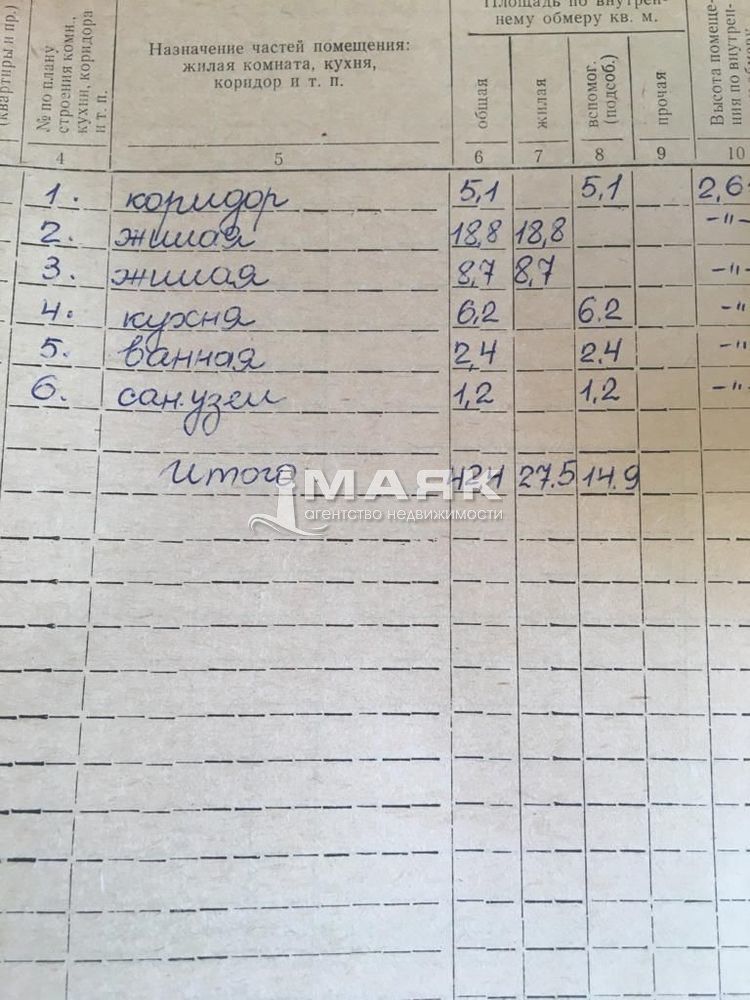 Площадь по внутрен-
нему обмеру кв. м.
(квартиры и пр.)
№ по плану
строения комн.,
кухни, коридора
и т. п.
Назначение частей помещения:
жилая комната, кухня,
коридор и т. п.
общая
жилая
вспомог.
(подсоб.)
прочая
Высота помеще-
ния по внутрен-
4 5 6 7 8 9 10
1. коридор 5,1 5,1 2,6
2. жилая 18,8 18,8 -"-
3. жилая 8,7 8,7 -"-
4. кухня 6.2 6.2 -"
5. ванная 2,4 2.4 -"-
6. сан.узел 1,2 1,2 -"-
Итого 42,4 27.5 14.9
МАЯК
агентство недвижимости